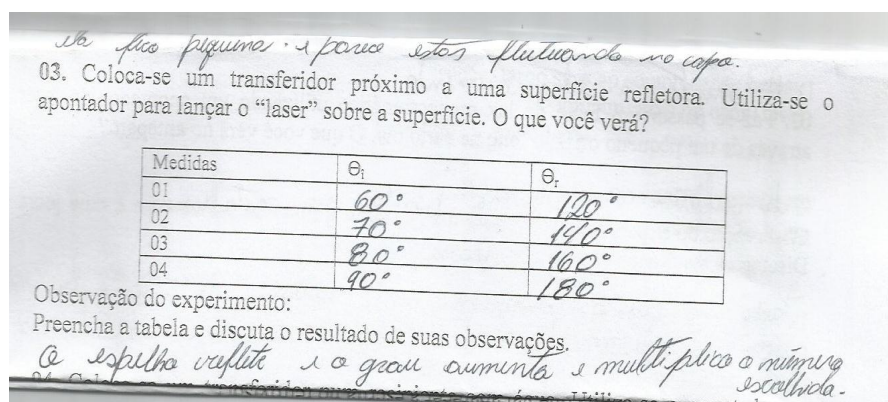 ela fica pequena. e parece estar flutuando no copo.
03. Coloca-se um transferidor próximo a uma superfície refletora. Utiliza-se o
apontador para lançar o “laser” sobre a superfície. O que você verá?
Medidas θi θr
01 60° 120°
02 70° 140°
03 80° 160°
04 90° 180°
Observação do experimento:
Preencha a tabela e discuta o resultado de suas observações.
O espelho reflete e o grau aumenta e multiplica o número
escolhido.